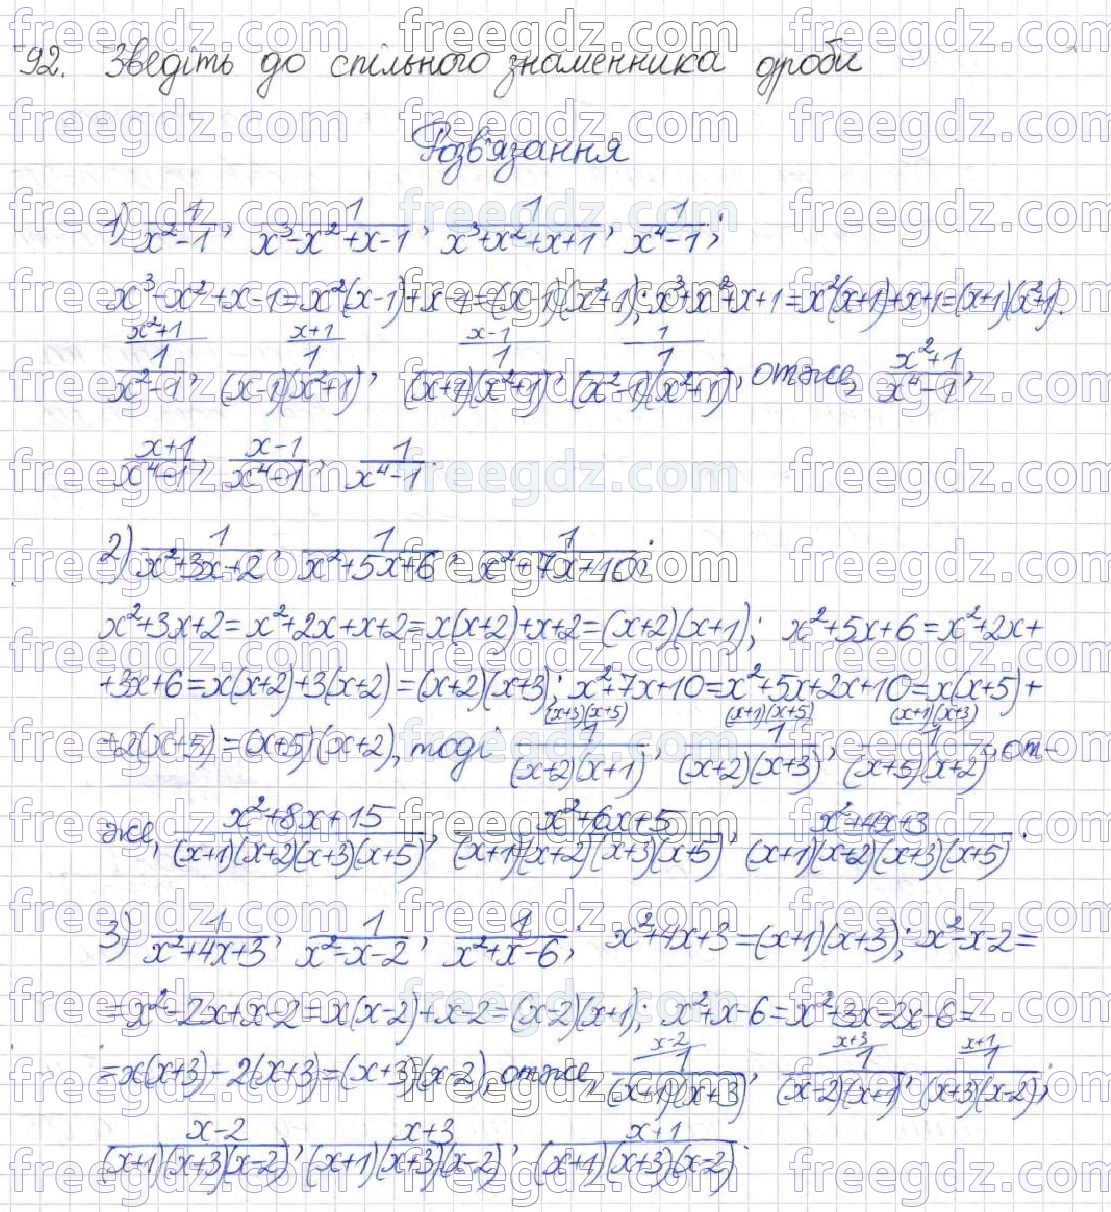 92. Зведіть до спільного знаменника дроби
Розв'язання
1) 1/(x²-1), 1/(x³-x²+x-1), 1/(x³+x²+x+1), 1/(x⁴-1);
x³-x²+x-1=x²(x-1)+x-1=(x-1)(x²+1); x³+x²+x+1=x²(x+1)+x+1=(x+1)(x²+1).
x²+1 x+1 x-1 1
1/(x²-1), 1/((x-1)(x²+1)), 1/((x+1)(x²+1)), 1/((x²-1)(x²+1)), отже, (x²+1)/(x⁴-1),
(x+1)/(x⁴-1), (x-1)/(x⁴-1), 1/(x⁴-1).
2) 1/(x²+3x+2), 1/(x²+5x+6), 1/(x²+7x+10);
x²+3x+2=x²+2x+x+2=x(x+2)+x+2=(x+2)(x+1); x²+5x+6=x²+2x+
+3x+6=x(x+2)+3(x+2)=(x+2)(x+3); x²+7x+10=x²+5x+2x+10=x(x+5)+
(x+3)(x+5) (x+1)(x+5) (x+1)(x+3)
+2(x+5)=(x+5)(x+2), тоді 1/((x+2)(x+1)), 1/((x+2)(x+3)), 1/((x+5)(x+2)), от-
же, (x²+8x+15)/((x+1)(x+2)(x+3)(x+5)), (x²+6x+5)/((x+1)(x+2)(x+3)(x+5)), (x²+4x+3)/((x+1)(x+2)(x+3)(x+5)).
3) 1/(x²+4x+3), 1/(x²-x-2), 1/(x²+x-6); x²+4x+3=(x+1)(x+3); x²-x-2=
=x²-2x+x-2=x(x-2)+x-2=(x-2)(x+1); x²+x-6=x²+3x-2x-6=
x-2 x+3 x+1
=x(x+3)-2(x+3)=(x+3)(x-2), отже, 1/((x+1)(x+3)), 1/((x-2)(x+1)), 1/((x+3)(x-2));
(x-2)/((x+1)(x+3)(x-2)), (x+3)/((x+1)(x+3)(x-2)), (x+1)/((x+1)(x+3)(x-2)).
freegdz.com